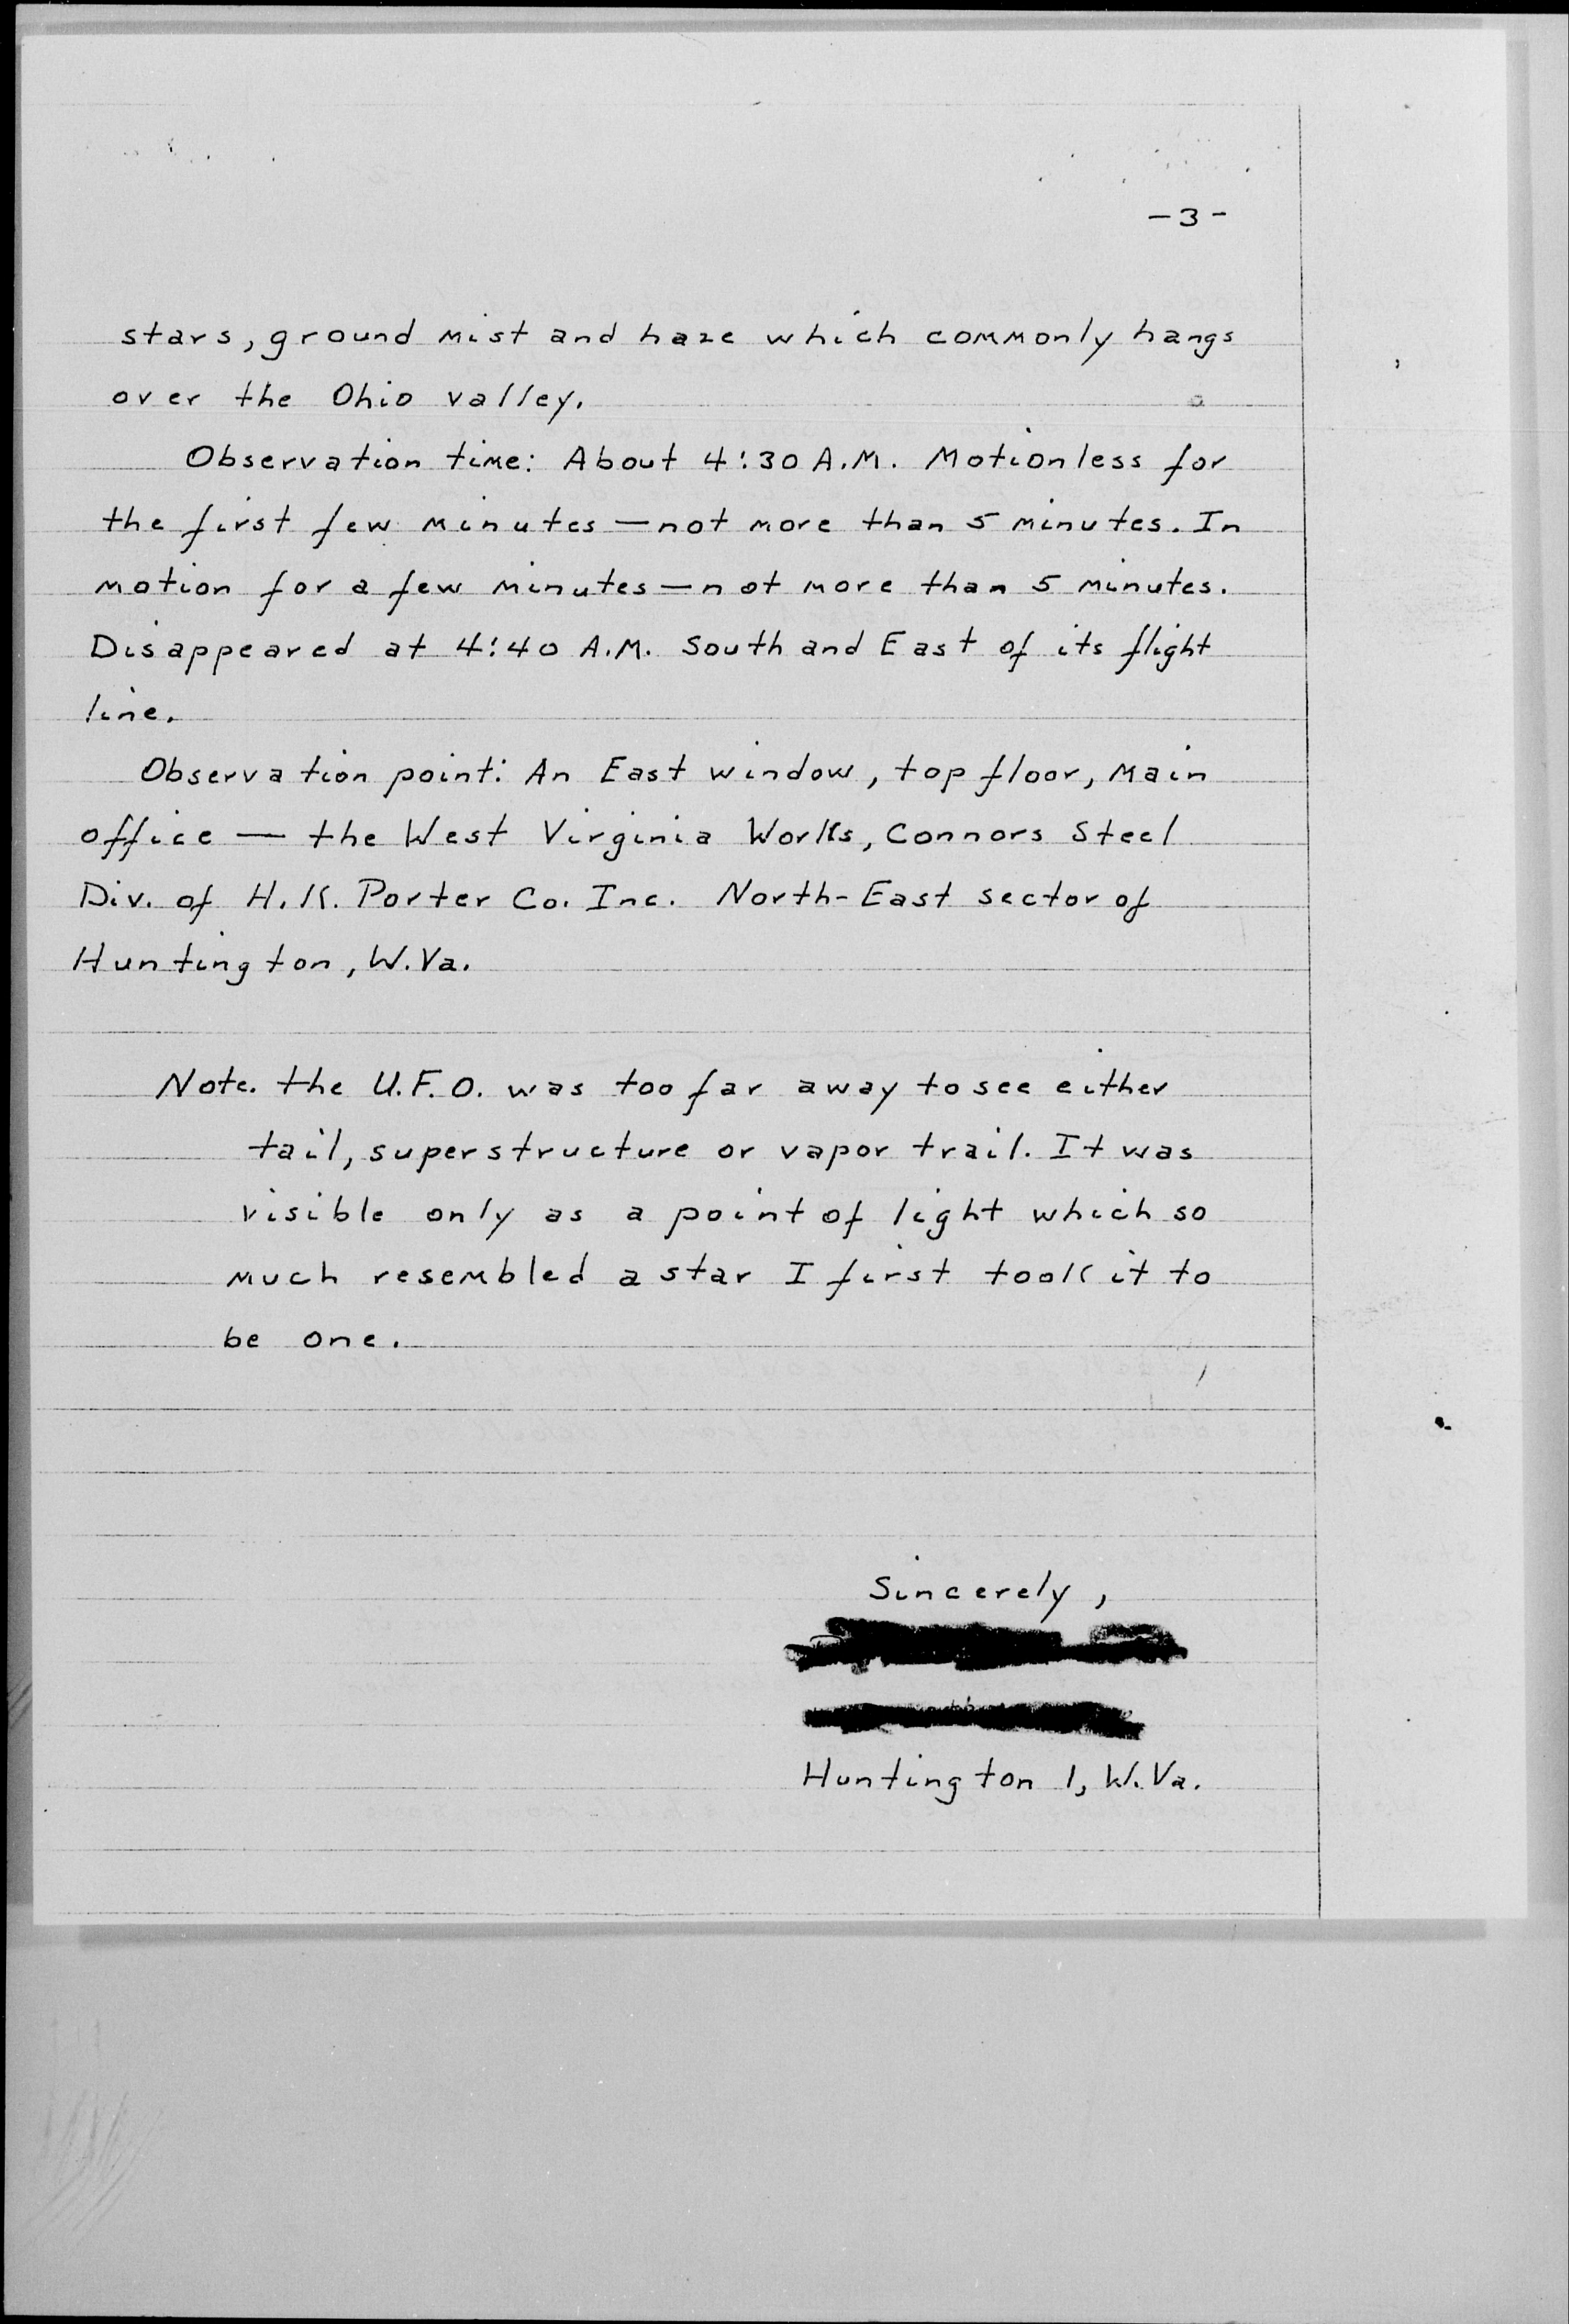 -3-
stars, ground mist and haze which commonly hangs
over the Ohio valley.
Observation time: About 4:30 A.M. Motionless for
the first few minutes — not more than 5 minutes. In
motion for a few minutes — not more than 5 minutes.
Disappeared at 4:40 A.M. South and East of its flight
line.
Observation point: An East window, top floor, Main
office — the West Virginia Works, Connors Steel
Div. of H. K. Porter Co. Inc. North-East sector of
Huntington, W.Va.
Note. the U.F.O. was too far away to see either
tail, superstructure or vapor trail. It was
visible only as a point of light which so
much resembled a star I first took it to
be one.
Sincerely,
Huntington 1, W.Va.